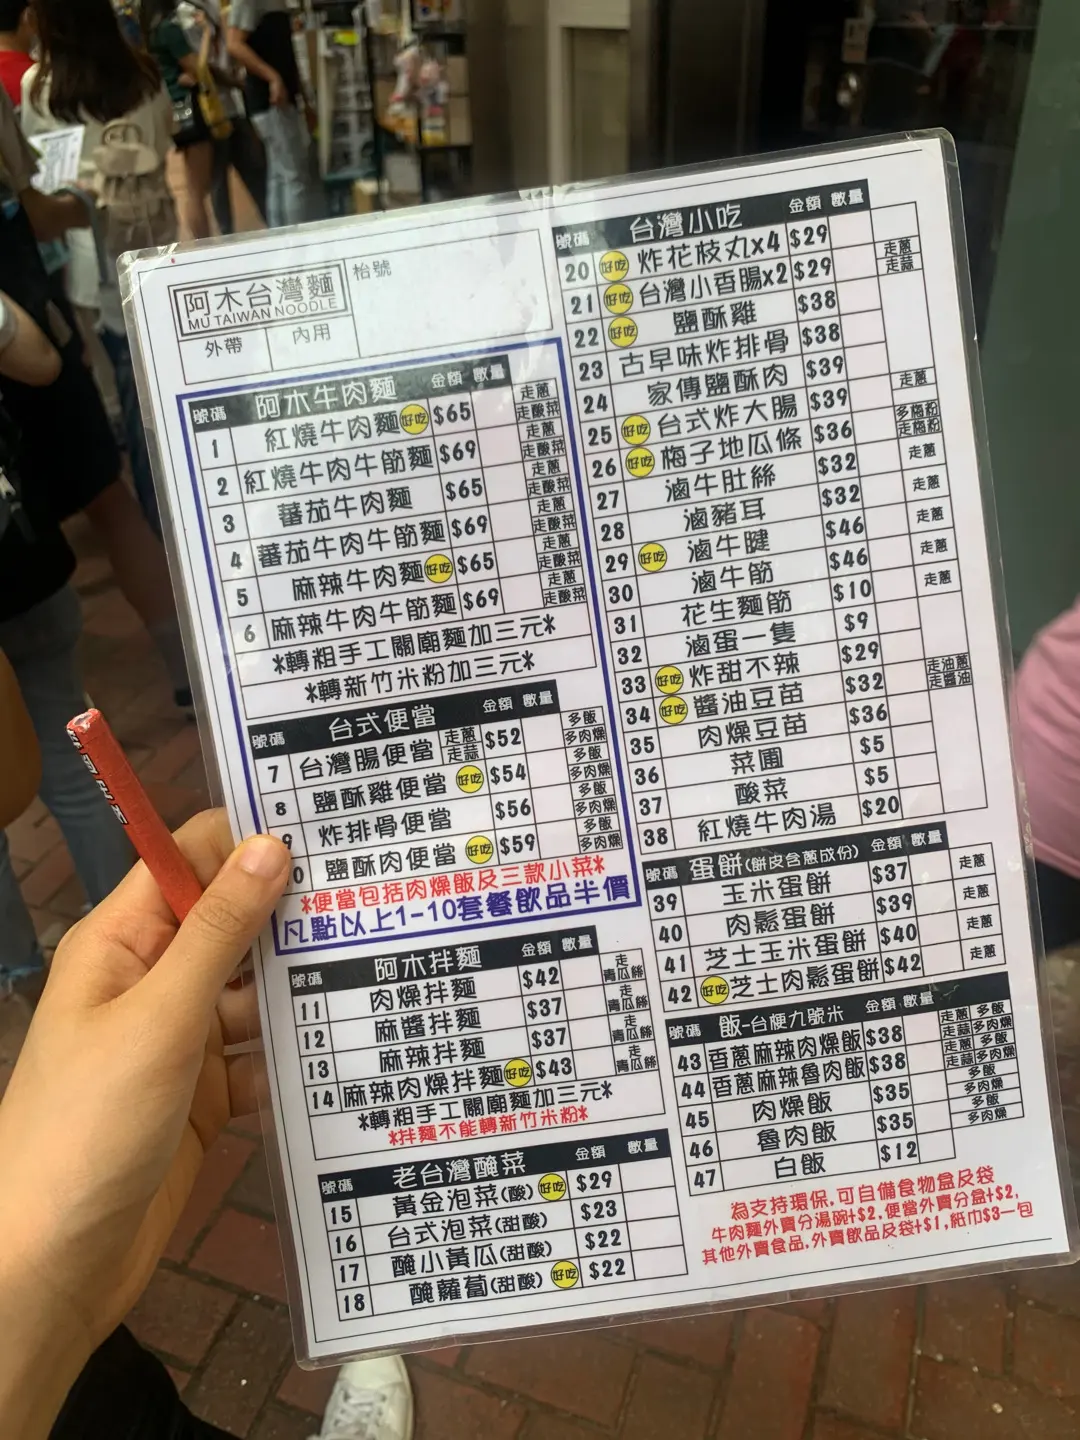 阿木台灣麵
MU TAIWAN NOODLE
枱號
外帶 內用
號碼 阿木牛肉麵 金額 數量
1 紅燒牛肉麵 好吃 $65 走蔥 走酸菜
2 紅燒牛肉牛筋麵 $69 走蔥 走酸菜
3 蕃茄牛肉麵 $65 走蔥 走酸菜
4 蕃茄牛肉牛筋麵 $69 走蔥 走酸菜
5 麻辣牛肉麵 好吃 $65 走蔥 走酸菜
6 麻辣牛肉牛筋麵 $69 走蔥 走酸菜
*轉粗手工關廟麵加三元*
*轉新竹米粉加三元*
號碼 台式便當 金額 數量
7 台灣腸便當 走蔥 走蒜 $52 多飯 多肉燥
8 鹽酥雞便當 好吃 $54 多飯 多肉燥
9 炸排骨便當 $56 多飯 多肉燥
0 鹽酥肉便當 好吃 $59 多飯 多肉燥
*便當包括肉燥飯及三款小菜*
凡點以上1-10套餐飲品半價
號碼 阿木拌麵 金額 數量
11 肉燥拌麵 $42 走青瓜絲
12 麻醬拌麵 $37 走青瓜絲
13 麻辣拌麵 $37 走青瓜絲
14 麻辣肉燥拌麵 好吃 $43 走青瓜絲
*轉粗手工關廟麵加三元*
*拌麵不能轉新竹米粉*
號碼 老台灣醃菜 金額 數量
15 黃金泡菜(酸) 好吃 $29
16 台式泡菜(甜酸) $23
17 醃小黃瓜(甜酸) $22
18 醃蘿蔔(甜酸) 好吃 $22
號碼 台灣小吃 金額 數量
20 好吃 炸花枝丸x4 $29
21 好吃 台灣小香腸x2 $29 走蔥 走蒜
22 好吃 鹽酥雞 $38
23 古早味炸排骨 $38
24 家傳鹽酥肉 $39
25 好吃 台式炸大腸 $39 走蔥
26 好吃 梅子地瓜條 $36 多梅粉 走梅粉
27 滷牛肚絲 $32 走蔥
28 滷豬耳 $32 走蔥
29 好吃 滷牛腱 $46 走蔥
30 滷牛筋 $46 走蔥
31 花生麵筋 $10 走蔥
32 滷蛋一隻 $9
33 好吃 炸甜不辣 $29
34 好吃 醬油豆苗 $32 走油蔥 走醬油
35 肉燥豆苗 $36
36 菜圃 $5
37 酸菜 $5
38 紅燒牛肉湯 $20
號碼 蛋餅(餅皮含蔥成份) 金額 數量
39 玉米蛋餅 $37 走蔥
40 肉鬆蛋餅 $39 走蔥
41 芝士玉米蛋餅 $40 走蔥
42 好吃 芝士肉鬆蛋餅 $42 走蔥
號碼 飯-台梗九號米 金額 數量
43 香蔥麻辣肉燥飯 $38 走蔥 多飯 走蒜 多肉燥
44 香蔥麻辣魯肉飯 $38 走蔥 多飯 走蒜 多肉燥
45 肉燥飯 $35 多飯 多肉燥
46 魯肉飯 $35 多飯 多肉燥
47 白飯 $12
為支持環保,可自備食物盒及袋
牛肉麵外賣分湯碗+$2,便當外賣分盒+$2,
其他外賣食品,外賣飲品及袋+$1,紙巾$3一包